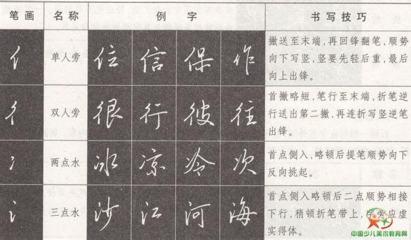 笔画 名称 例字 书写技巧
亻 单人旁 位 信 保 作
撇送至末端，再回锋翻笔，顺势
向下写竖，竖要先轻后重，最后
向上出锋。
彳 双人旁 很 行 彼 往
首撇略短，笔行至末端，折笔逆
行送出第二撇，再连折写竖逆笔
出锋。
冫 两点水 冰 凉 冷 次
首点侧入，略顿后提笔顺势向下
反向挑起。
氵 三点水 沙 江 河 海
首点侧入略顿后二点顺势相接
下行，稍顿折笔带上，
实得体。
中国少儿美术教育网